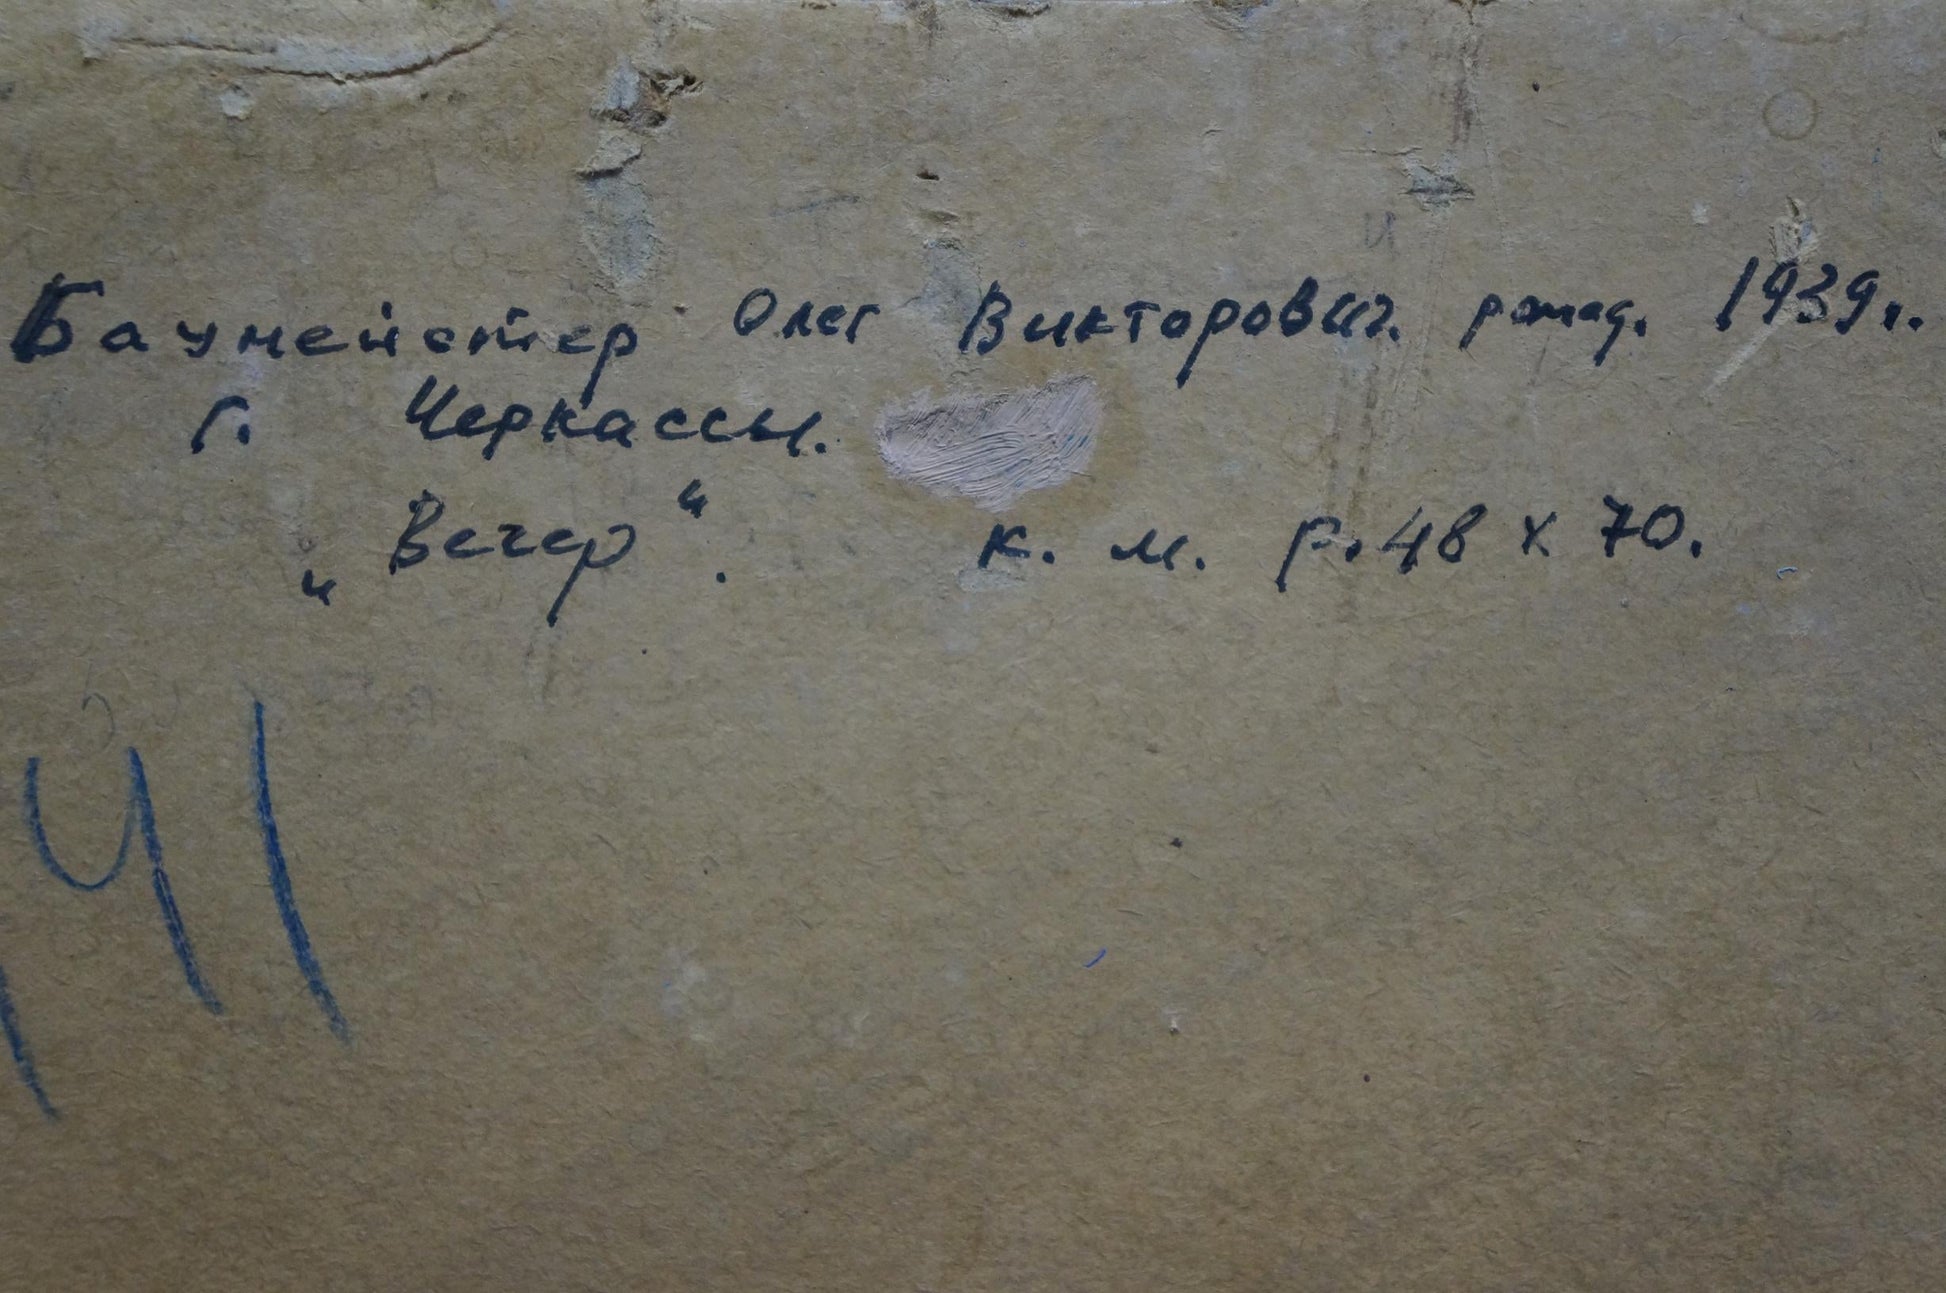 Баумейстер Олег Викторович. рожд. 1939г.
г. Черкассы.
„Вечер“. к. м. р. 48 х 70.
41